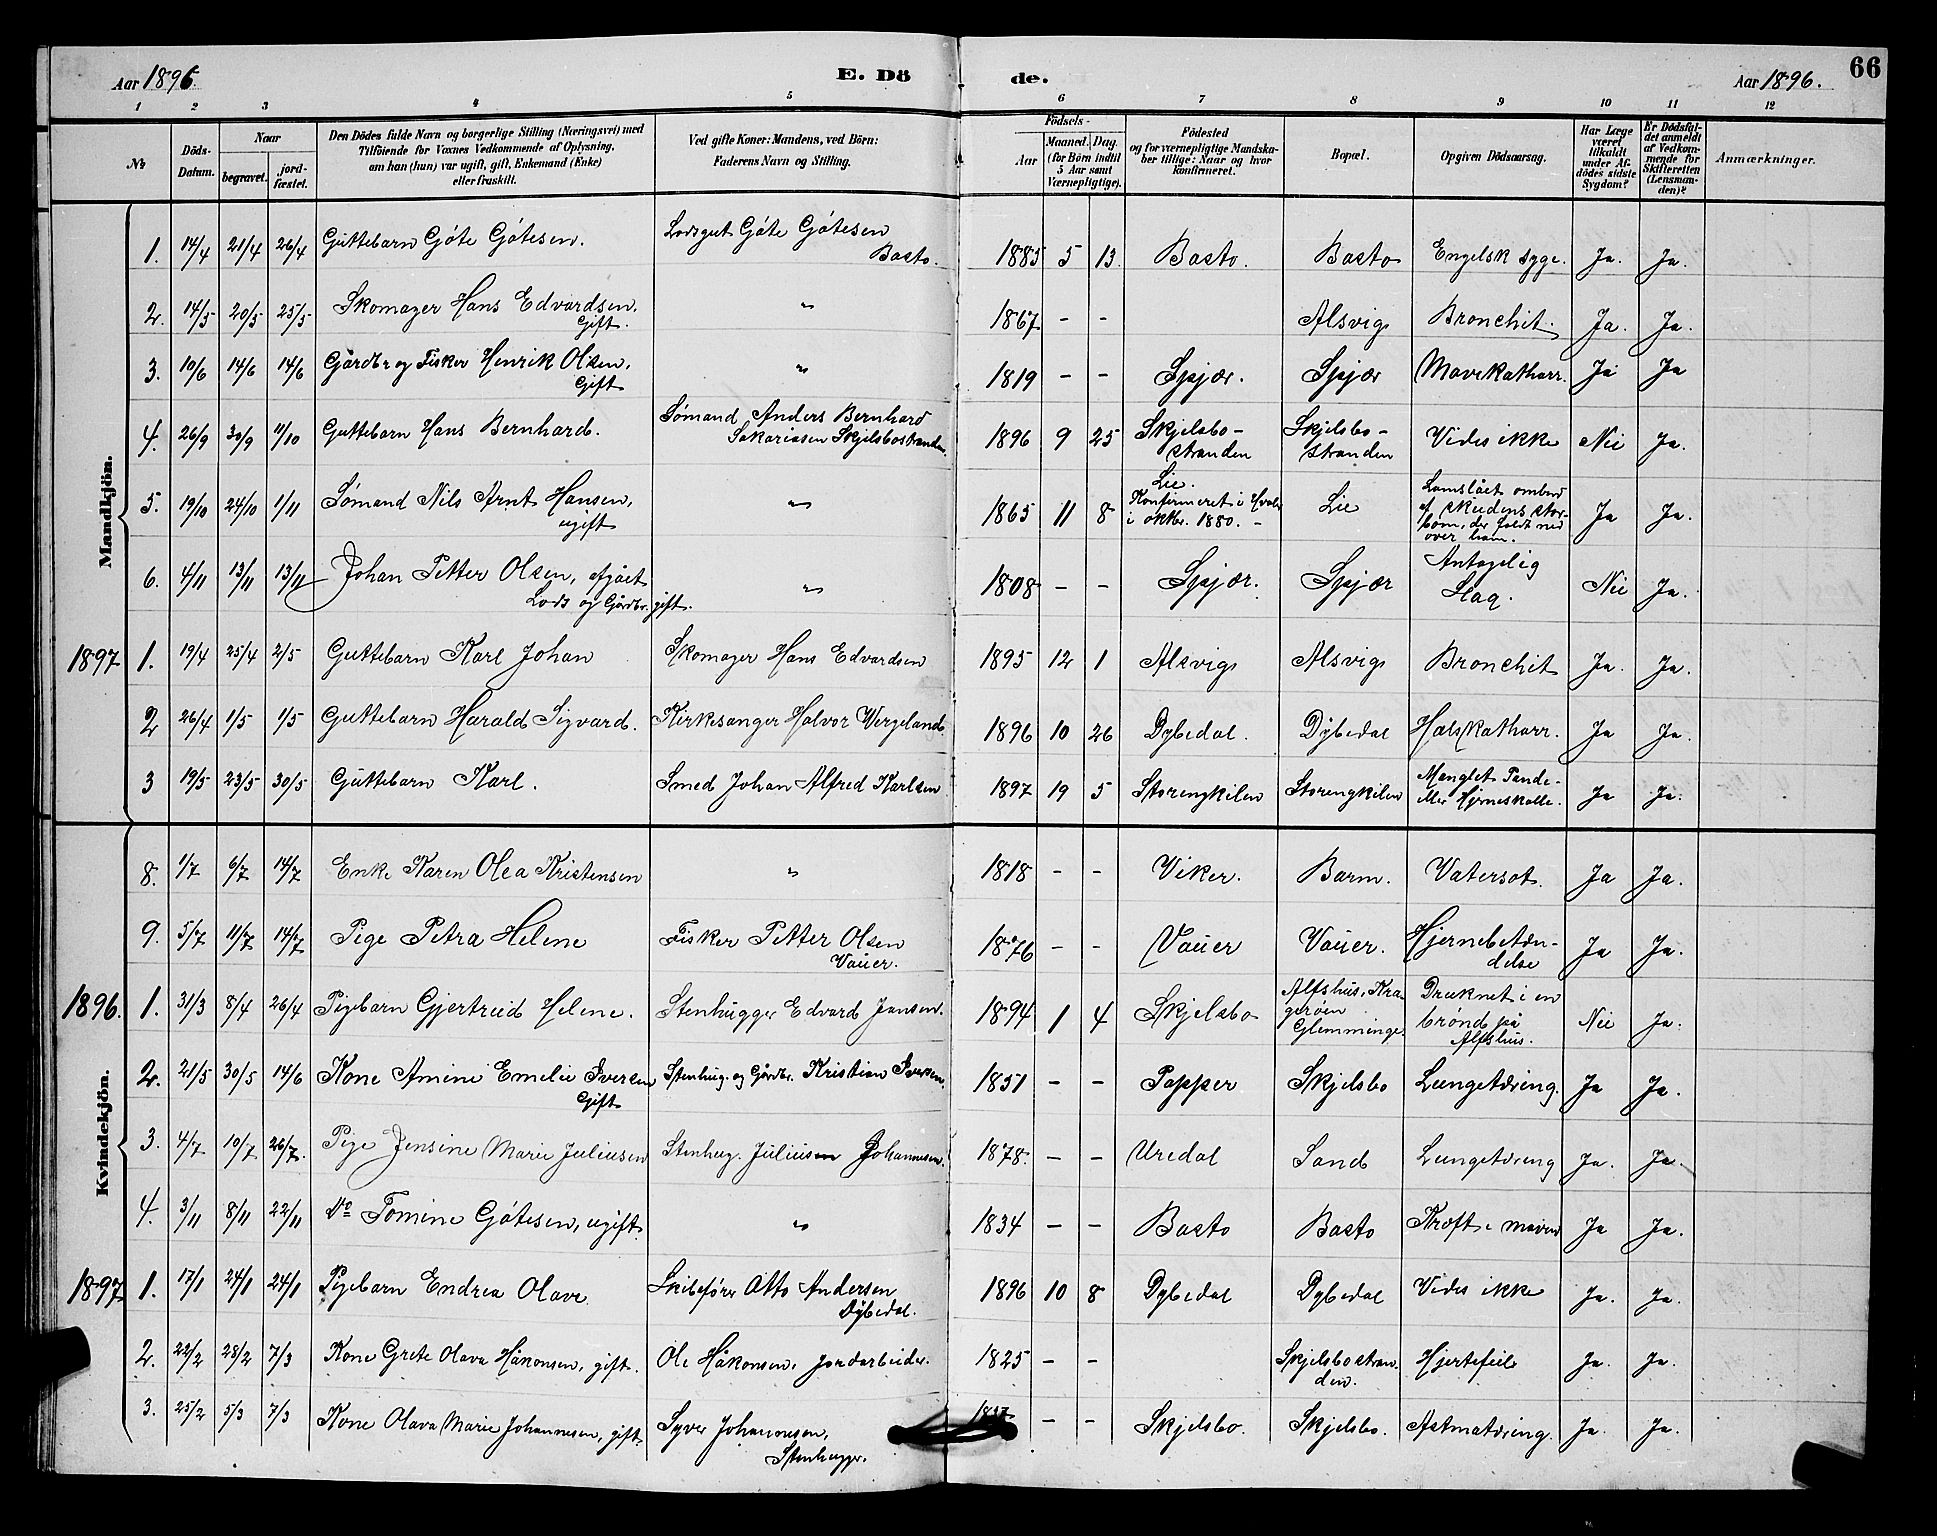 Aar 1896. E. Dö de. Aar 1896. 66
1 2 3 4 5 6 7 8 9 10 11 12
№ Döds-Datum. Naar begravet. jordfæstet. Den Dödes fulde Navn og borgerlige Stilling (Næringsvei) med Tilföiende for Voxnes Vedkommende af Oplysning, om han (hun) var ugift, gift, Enkemand (Enke) eller fraskilt. Ved gifte Koner: Mandens, ved Börn: Faderens Navn og Stilling. Födsels- Aar Maaned. Dag. (for Börn indtil 5 Aar samt Værnepligtige). Födested og for værnepligtige Mandskaber tillige: Naar og hvor konfirmeret. Bopæl. Opgiven Dödsaarsag. Har Læge været tilkaldt under Afdödes sidste Sygdom? Er Dödsfaldet anmeldt af Vedkommende for Skifteretten (Lensmanden)? Anmærkninger.
Mandkjön.
1. 14/4 21/4 26/4 Guttebarn Göte Götesen. Lodsgut Göte Götesen Basto. 1885 5 13 Basto. Basto Engelsk syge. Ja. Ja.
2. 14/5 20/5 25/5 Skomager Hans Edvardsen. Gift. " 1867 - - Alsvig Bronchit. Ja. Ja.
3. 10/6 14/6 14/6 Gårdbr og Fisker Henrik Olsen. Gift " 1819 - - Spjær. Spjær Mavekatharr. Ja Ja
4. 26/9 30/9 11/10 Guttebarn Hans Bernhard. Sömand Anders Bernhard Sakariasen Skjelsbostranden. 1896 9 25 Skjelsbo-stranden Skjelsbo-stranden Vides ikke Nei Ja.
5. 19/10 24/10 1/11 Sömand Nils Arnt Hansen, ugift " 1865 11 8 Lie. Konfirmeret i Hvaler i oktbr. 1880. - Lie Lamslået ombord af skudens storbom, der faldt ned over ham. Ja Ja.
6. 4/11 13/11 13/11 Johan Petter Olsen, afgået Lods og Gårdbr. gift. " 1808 - - Spjær. Spjær Antagelig Slag. Nei Ja.
1897 1. 19/4 25/4 2/5 Guttebarn Karl Johan Skomager Hans Edvardsen 1895 12 1 Alsvig Alsvig Bronchit Ja. Ja.
2 26/4 1/5 1/5 Guttebarn Harald Sigvard. Kirkesanger Halvor Wergeland 1896 10 26 Dybedal. Dybedal Halskatharr. Ja Ja.
3 19/5 23/5 30/5 Guttebarn Karl. Smed Johan Alfred Karlsen 1897 19 5 Storengkilen Storengkilen Manglet Pande- eller Hjerneskalle. Ja Ja.
Kvindekjön.
8. 1/7 6/7 14/7 Enke Karen Olea Kristensen " 1818 - - Viker. Barm. Vatersot. Ja Ja.
9. 5/7 11/7 14/7 Pige Petra Helene Fisker Petter Olsen Vauer. 1876 - - Vauer Vauer. Hjernebetæn-delse Ja Ja.
1896. 1. 31/3 8/4 26/4 Pigebarn Gjertrud Helene. Stenhugger Edvard Jensen. 1894 1 4 Skjelsbo Alfshus, Kragerøen Glemminge. Druknet i en brönd på Alfshus. Nei Ja.
2. 21/5 30/5 14/6 Kone Amine Emelie Iversen Gift Stenhug. og Gårdbr. Kristian Iversen. 1851 - - Papper Skjelsbo Lungetæring. Ja Ja.
3. 4/7 10/7 26/7. Pige Jensine Marie Juliusen Stenhug. Juliusen Johannesen. 1878. - - Uredal Sand Lungetæring Ja. Ja.
4. 3/11 8/11 22/11 Do Tomine Götesen, ugift " 1834 - - Basto Basto Kræft i maven Ja Ja.
1897 1. 17/1 24/1 24/1 Pigebarn Endrea Olave Skibsförer Otto Andersen Dybedal. 1896 10 8 Dybedal Dybedal Vides ikke Ja. Ja.
2. 22/2 28/2 7/3 Kone Grete Olava Håkonsen, gift. Ole Håkonsen, Jordarbeider. 1825 - - Skjelsbostranden. Hjertefeil Ja. Ja.
3. 25/2 5/3 7/3 Kone Olava Marie Johannesen, gift. Syver Johannesen, Stenhugger. - - Skjelsbo. Skjelsbo. Astmatæring. Ja. Ja.